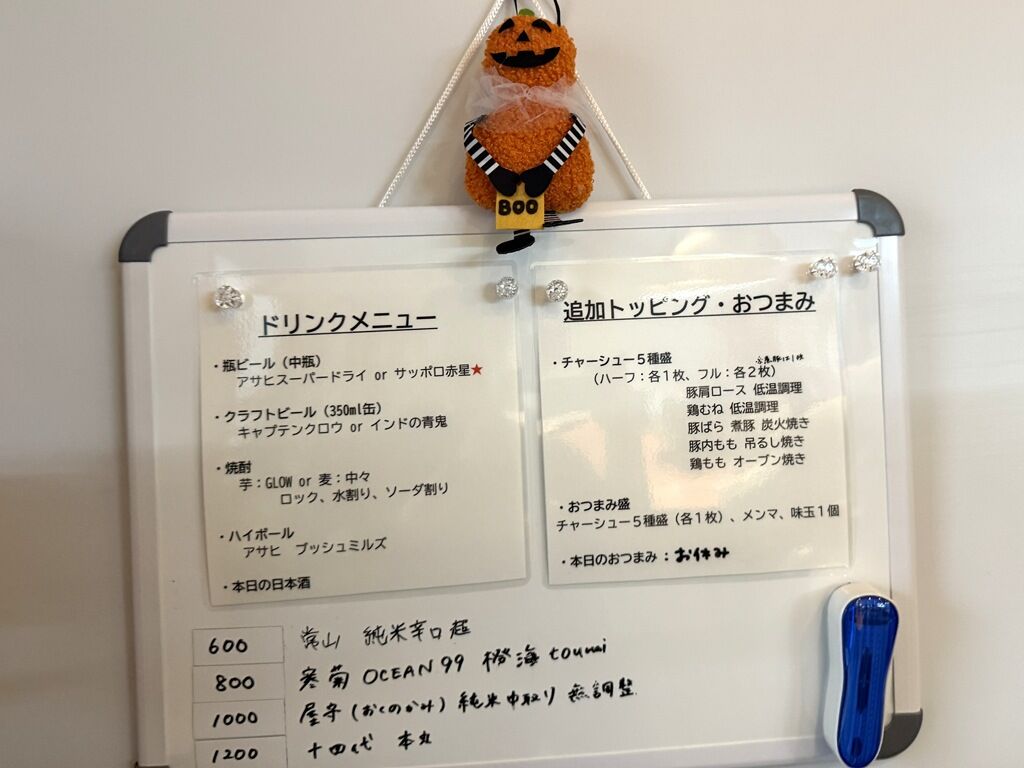 BOO
ドリンクメニュー
・瓶ビール（中瓶）
アサヒスーパードライ or サッポロ赤星★
・クラフトビール（350ml缶）
キャプテンクロウ or インドの青鬼
・焼酎
芋：GLOW or 麦：中々
ロック、水割り、ソーダ割り
・ハイボール
アサヒ ブッシュミルズ
・本日の日本酒
600 常山 純米辛口 超
800 寒菊 OCEAN99 橙海 toumi
1000 屋守（おくのかみ）純米中取り 無調整
1200 十四代 本丸
追加トッピング・おつまみ
・チャーシュー５種盛
（ハーフ：各１枚、フル：各２枚）
豚肩ロース 低温調理
鶏むね 低温調理
豚ばら 煮豚 炭火焼き
豚内もも 吊るし焼き
鶏もも オーブン焼き
・おつまみ盛
チャーシュー５種盛（各１枚）、メンマ、味玉１個
・本日のおつまみ：お休み